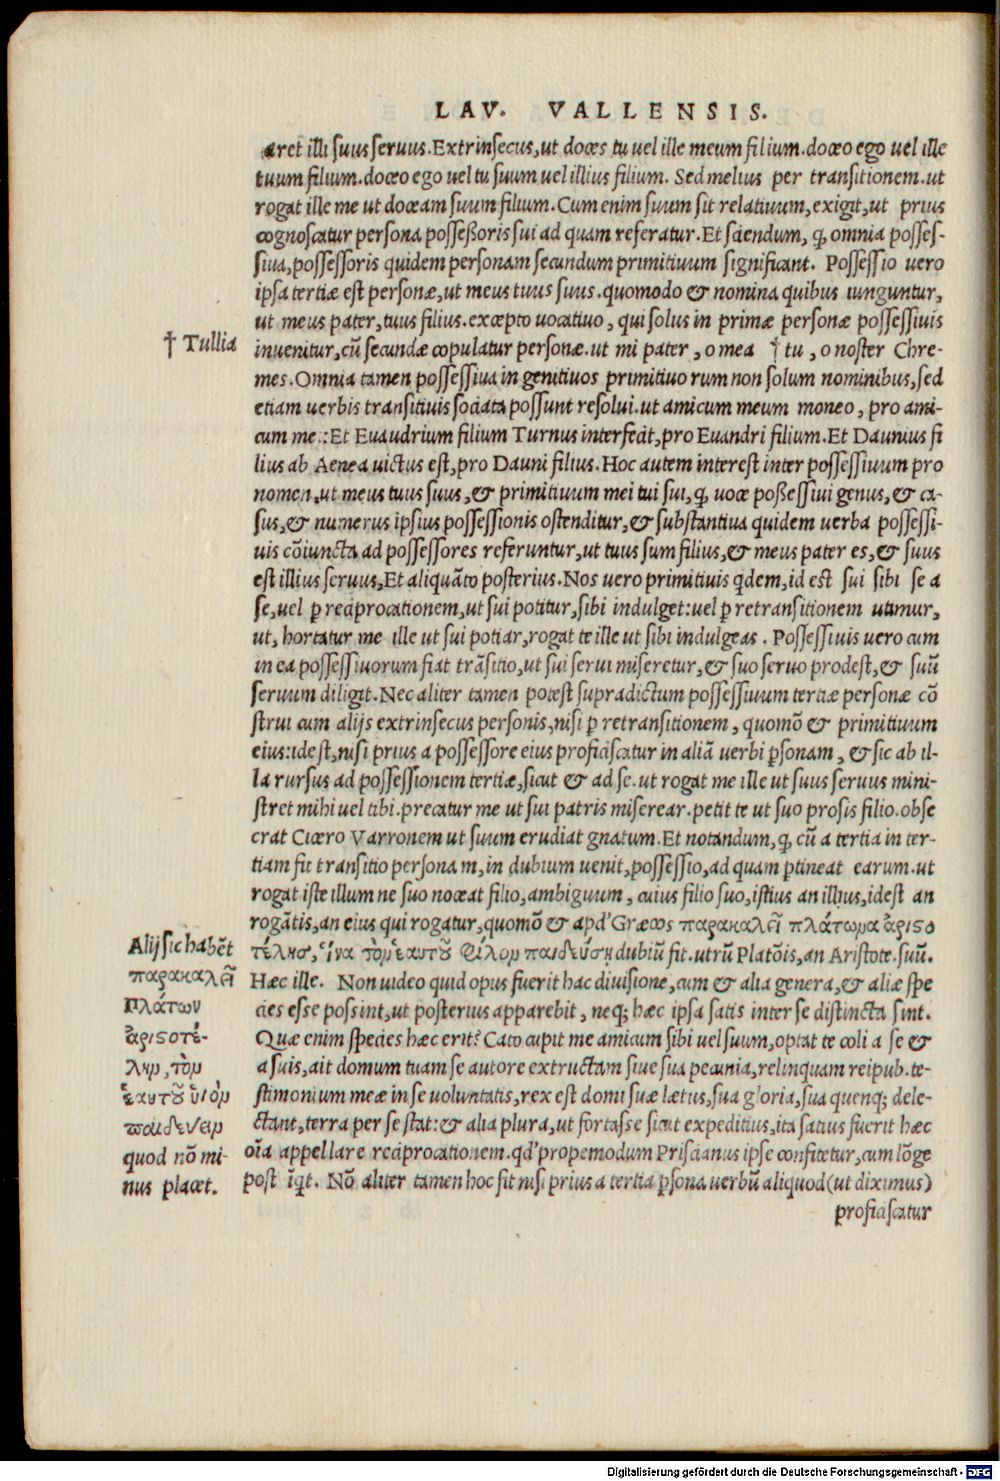 LAV. VALLENSIS.
aret illi suus seruus. Extrinsecus, ut doces tu uel ille meum filium. doceo ego uel ille
tuum filium. doceo ego uel tu suum uel illius filium. Sed melius per transitionem. ut
rogat ille me ut doceam suum filium. Cum enim suum sit relatiuum, exigit, ut prius
cognoscatur persona posseßoris sui ad quam referatur. Et sciendum, ꝙ omnia posses-
siua, possessoris quidem personam secundum primitiuum significant. Possessio uero
ipsa tertiæ est personæ, ut meus tuus suus. quomodo & nomina quibus iunguntur,
ut meus pater, tuus filius. excepto uocatiuo, qui solus in primæ personæ possessiuis
† Tullia
inuenitur, cũ secundæ copulatur personæ. ut mi pater, o mea † tu, o noster Chre-
mes. Omnia tamen possessiua in genitiuos primitiuo rum non solum nominibus, sed
etiam uerbis transitiuis sociata possunt resolui. ut amicum meum moneo, pro ami-
cum mei: Et Euaudrium filium Turnus interfecit, pro Euandri filium. Et Daunius fi
lius ab Aenea uictus est, pro Dauni filius. Hoc autem interest inter possessiuum pro
nomen, ut meus tuus suus, & primitiuum mei tui sui, ꝙ uoce poßessiui genus, & ca-
sus, & numerus ipsius possessionis ostenditur, & substantiua quidem uerba possessi-
uis cõiuncta ad possessores referuntur, ut tuus sum filius, & meus pater es, & suus
est illius seruus, Et aliquãto posterius. Nos uero primitiuis qdem, id est sui sibi se a
se, uel ꝑ reciprocationem, ut sui potitur, sibi indulget: uel ꝑ retransitionem utimur,
ut, hortatur me ille ut sui potiar, rogat te ille ut sibi indulgeas. Possessiuis uero cum
in ea possessiuorum fiat trãsitio, ut sui serui miseretur, & suo seruo prodest, & suũ
seruum diligit. Nec aliter tamen potest supradictum possessiuum tertiæ personæ cõ
strui cum alijs extrinsecus personis, nisi ꝑ retransitionem, quomõ & primitiuum
eius: idest, nisi prius a possessore eius proficiscatur in aliã uerbi ꝑsonam, & sic ab il-
la rursus ad possessionem tertiæ, sicut & ad se. ut rogat me ille ut suus seruus mini-
stret mihi uel tibi. precatur me ut sui patris miserear. petit te ut suo prosis filio. obse
crat Cicero Varronem ut suum erudiat gnatum. Et notandum, ꝙ cũ a tertia in ter-
tiam fit transitio persona m, in dubium uenit, possessio, ad quam ꝑtineat earum. ut
rogat iste illum ne suo noceat filio, ambiguum, cuius filio suo, istius an illius, idest an
rogãtis, an eius qui rogatur, quomõ & apd' Græcos παρακαλεῖ πλάτωνα ἀριςο
τέλης, ἵνα τὸν ἑαυτοῦ φίλον παιδεύσῃ dubiũ fit. utrũ Platõis, an Aristote. suũ.
Alij sic habẽt
παρακαλεῖ
Πλάτων
ἀριςοτέ-
λην, τὸν
ἑαυτοῦ ὑιὸν
παιδεύειν
quod nõ mi-
nus placet.
Hæc ille. Non uideo quid opus fuerit hac diuisione, cum & alia genera, & aliæ spe
cies esse possint, ut posterius apparebit, neq; hæc ipsa satis inter se distincta sint.
Quæ enim species hæc erit? Cato cupit me amicum sibi uel suum, optat te coli a se &
a suis, ait domum tuam se autore extructam siue sua pecunia, relinquam reipub. te-
stimonium meæ in se uoluntatis, rex est domi suæ lætus, sua gloria, sua quenq; dele-
ctant, terra per se stat: & alia plura, ut fortasse sicut expeditius, ita satius fuerit hæc
oĩa appellare reciprocationem. qd' propemodum Priscianus ipse confitetur, cum lõge
post ĩqt. Nõ aliter tamen hoc fit nisi prius a tertia ꝑsona uerbũ aliquod (ut diximus)
proficiscatur
Digitalisierung gefördert durch die Deutsche Forschungsgemeinschaft - DFG